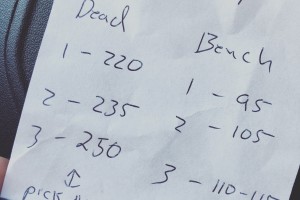 Dead
1 - 220
2 - 235
3 - 250
↕
pick
Bench
1 - 95
2 - 105
3 - 110-115